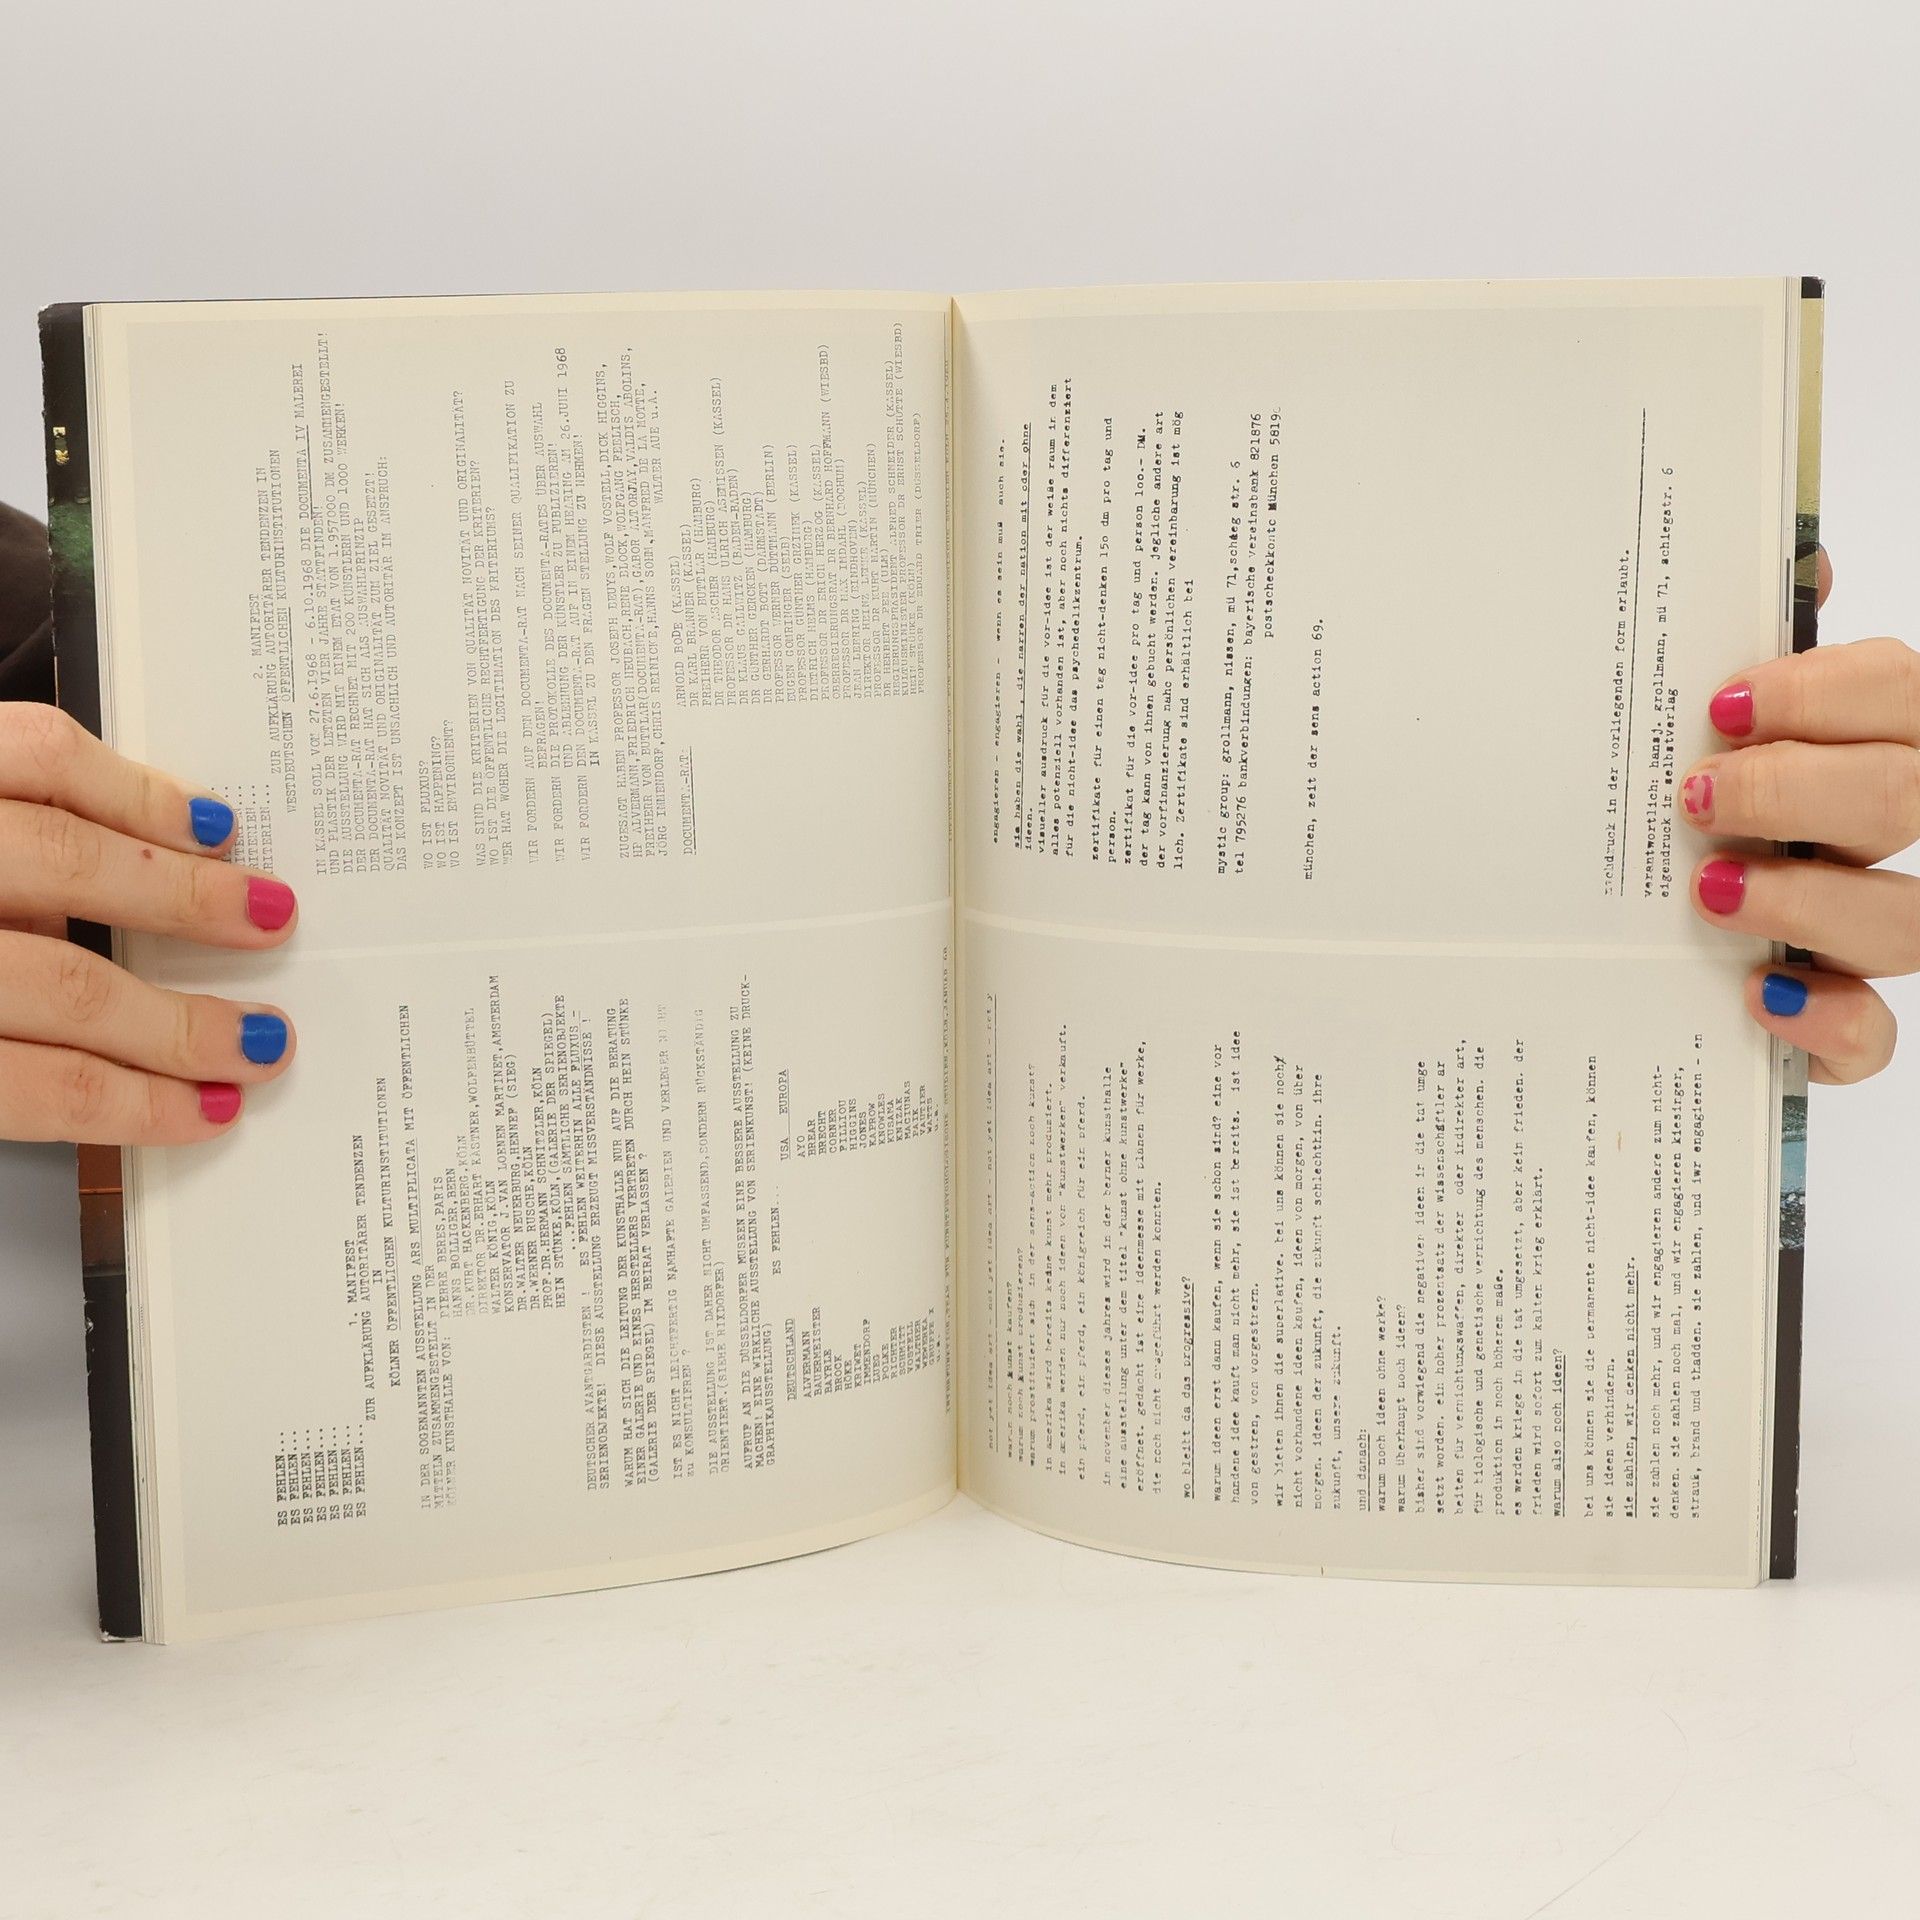 ES FEHLEN...
ES FEHLEN...
ES FEHLEN...
ES FEHLEN...
ES FEHLEN...
ES FEHLEN...
ES FEHLEN...
1. MANIFEST
ZUR AUFKLÄRUNG AUTORITÄRER TENDENZEN
IN
KÖLNER ÖFFENTLICHEN KULTURINSTITUTIONEN
IN DER SOGENANNTEN AUSSTELLUNG ARS MULTIPLICATA MIT ÖFFENTLICHEN
MITTELN ZUSAMMENGESTELLT IN DER
KÖLNER KUNSTHALLE VON:
PIERRE BERES,PARIS
HANNS BOLLIGER,BERN
DR.KURT HACKENBERG,KÖLN
DIREKTOR DR.ERHART KÄSTNER,WOLFENBÜTTEL
WALTER KÖNIG,KÖLN
KONSERVATOR J.VAN LOENEN MARTINET,AMSTERDAM
DR.WALTER NEUERBURG,HENNEF (SIEG)
DR.WERNER RUSCHE,KÖLN
PROF.DR.HERMANN SCHNITZLER,KÖLN
HEIN STÜNKE,KÖLN,(GALERIE DER SPIEGEL)
...FEHLEN SÄMTLICHE SERIENOBJEKTE
DEUTSCHER AVANTGARDISTEN ! ES FEHLEN WEITERHIN ALLE FLUXUS -
SERIENOBJEKTE! DIESE AUSSTELLUNG ERZEUGT MISSVERSTÄNDNISSE !
WARUM HAT SICH DIE LEITUNG DER KUNSTHALLE NUR AUF DIE BERATUNG
EINER GALERIE UND EINES HERSTELLERS VERTRETEN DURCH HEIN STÜNKE
(GALERIE DER SPIEGEL) IM BEIRAT VERLASSEN ?
IST ES NICHT LEICHTFERTIG NAMHAFTE GALERIEN UND VERLEGER NICHT
ZU KONSULTIEREN ?
DIE AUSSTELLUNG IST DAHER NICHT UMFASSEND,SONDERN RÜCKSTÄNDIG
ORIENTIERT.(SIEHE RIXDORFER)
AUFRUF AN DIE DÜSSELDORFER MUSEEN EINE BESSERE AUSSTELLUNG ZU
MACHEN! EINE WIRKLICHE AUSSTELLUNG VON SERIENKUNST! (KEINE DRUCK-
GRAPHIKAUSSTELLUNG) ES FEHLEN...
DEUTSCHLAND
ALVERMANN
BAUERMEISTER
BAYRLE
BROCK
HÖKE
KRIWET
IMMENDORF
LUEG
POLKE
RICHTER
SCHMITT
VOSTELL
WALTHER
WEWERKA
GRUPPE X
u.a.
USA EUROPA
AYO
BREAR
BRECHT
CORNER
FILLIOU
HIGGINS
JONES
KAPROW
KNOWLES
KUSAMA
KNIZAK
MACIUNAS
PAIK
VAUTIER
WATTS
u.a.
KRITERIEN...
KRITERIEN...
2. MANIFEST
ZUR AUFKLÄRUNG AUTORITÄRER TENDENZEN IN
WESTDEUTSCHEN ÖFFENTLICHEN KULTURINSTITUTIONEN
IN KASSEL SOLL VOM 27.6.1968 - 6.10.1968 DIE DOCUMENTA IV MALEREI
UND PLASTIK DER LETZTEN VIER JAHRE STATTFINDEN!
DIE AUSSTELLUNG WIRD MIT EINEM ETAT VON 1.957000 DM ZUSAMMENGESTELLT!
DER DOCUMENTA-RAT RECHNET MIT 200 KÜNSTLERN UND 1000 WERKEN!
DER DOCUMENTA-RAT HAT SICH ALS AUSWAHLPRINZIP
QUALITÄT NOVITÄT UND ORIGINALTÄT ZUM ZIEL GESETZT!
DAS KONZEPT IST UNSACHLICH UND AUTORITÄR IM ANSPRUCH:
WO IST FLUXUS?
WO IST HAPPENING?
WO IST ENVIRONMENT?
WAS SIND DIE KRITERIEN VON QUALITÄT NOVITÄT UND ORIGINALITÄT?
WO IST DIE ÖFFENTLICHE RECHTFERTIGUNG DER KRITERIEN?
WER HAT WOHER DIE LEGITIMATION DES KRITERIUMS?
WIR FORDERN AUF DEN DOCUMENTA-RAT NACH SEINER QUALIFIKATION ZU
BEFRAGEN!
WIR FORDERN DIE PROTOKOLLE DES DOCUMENTA-RATES ÜBER AUSWAHL
UND ABLEHNUNG DER KÜNSTLER ZU PUBLIZIEREN!
WIR FORDERN DEN DOCUMENTA-RAT AUF IN EINEM HEARING AM 26.JUNI 1968
IN KASSEL ZU DEN FRAGEN STELLUNG ZU NEHMEN!
ZUGESAGT HABEN PROFESSOR JOSEPH BEUYS,WOLF VOSTELL,DICK HIGGINS,
HP ALVERMANN,FRIEDRICH HEUBACH,RENE BLOCK,WOLFGANG FEELISCH,
FREIHERR VON BUTTLAR(DOCUMENTA-RAT),GABOR ALTORJAY,VALDIS ABOLINS,
JÖRG IMMENDORF,CHRIS REINICE,HANNS SOHM,MANFRED DE LA MOTTE,
WALTER AUE u.A.
DOCUMENTA-RAT:
ARNOLD BODE (KASSEL)
DR KARL BRANNER (KASSEL)
FREIHERR VON BUTTLAR (HAMBURG)
DR THEODOR ASCHER (HAMBURG)
PROFESSOR DR HANS ULRICH ASEMISSEN (KASSEL)
DR KLAUS GALLWITZ (BADEN-BADEN)
DR GÜNTHER GERCKEN (HAMBURG)
DR GERHARDT BOTT (DARMSTADT)
PROFESSOR WERNER DÜTTMANN (BERLIN)
EUGEN GOMRINGER (SELB)
PROFESSOR GÜNTHER GRZIMEK (KASSEL)
DIETRICH HELMS (HAMBURG)
PROFESSOR DR ERICH HERZOG (KASSEL)
OBERREGIERUNGSRAT DR BERNHARD HOFFMANN (WIESBD)
PROFESSOR DR MAX IMDAHL (BOCHUM)
JEAN LEERING (EINDHOVEN)
DIREKTOR HEINZ (KASSEL)
PROFESSOR DR KURT MARTIN (MÜNCHEN)
DR HERBERT PEE (ULM)
REGIERUNGSPRÄSIDENT ALFRED SCHNEIDER (KASSEL)
KULTUSMINISTER PROFESSOR DR ERNST SCHÜTTE (WIESBD)
HEIN STÜNKE (KÖLN)
PROFESSOR DR EDUARD TRIER (DÜSSELDORF)
not yet idea art - not yet idea art - not yet idea art - not y
warum noch kunst kaufen?
warum noch kunst produzieren?
warum prostituiert sich in der sens-action noch kunst?
in amerika wird bereits keine kunst mehr produziert.
in amerika werden nur noch ideen von "kunstwerken" verkauft.
ein pferd, ein pferd, ein königreich für ein pferd.
in november dieses jahres wird in der berner kunsthalle
eine ausstellung unter dem titel "kunst ohne kunstwerke"
eröffnet. gedacht ist eine ideenmesse mit plänen für werke,
die noch nicht ausgeführt werden konnten.
wo bleibt da das progressive?
warum ideen erst dann kaufen, wenn sie schon sind? eine vor
handene idee kauft man nicht mehr, sie ist bereits. ist idee
von gestren, von vorgestrern.
wir bieten ihnen die superlative. bei uns können sie noch
nicht vorhandene ideen kaufen, ideen von morgen, von über
morgen. ideen der zukunft, die zukunft schlechthin. ihre
zukunft, unsere zukunft.
und danach:
warum noch ideen ohne werke?
warum überhaupt noch ideen?
bisher sind vorwiegend die negativen ideen in die tat umge
setzt worden. ein hoher prozentsatz der wissenschaftler ar
beiten für vernichtungswaffen, direkter oder indirekter art,
für biologische und genetische vernichtung des menschen. die
produktion in noch höherem maße.
es werden kriege in die tat umgesetzt, aber kein frieden. der
frieden wird sofort zum kalten krieg erklärt.
warum also noch ideen?
bei uns können sie die permanente nicht-idee kaufen, können
sie ideen verhindern.
sie zahlen, wir denken nicht mehr.
sie zahlen noch mehr, und wir engagieren andere zum nicht-
denken. sie zahlen noch mal, und wir engagieren kiesirger,
strauß, brand und thadden. sie zahlen, und iwr engagieren - en
engagieren - engagieren - wenn es sein muß auch sie.
sie haben die wahl , die narren der nation mit oder ohne
ideen.
visueller ausdruck für die vor-idee ist der weiße raum in dem
alles potenziell vorhanden ist, aber noch nichts differenziert
für die nicht-idee das psychedelikzentrum.
zertifikate für einen tag nicht-denken 15o dm pro tag und
person.
zertifikat für die vor-idee pro tag und person 1oo.- DM.
der tag kann von ihnen gebucht werden. jegliche andere art
der vorfinanzierung nahc persönlichen vereinbarung ist mög
lich. Zertifikate sind erhältlich bei
mystic group: grollmann, nissen, mü 71,schäeg str. 6
tel 795276 bankverbindungen: bayerische vereinsbank 821876
postscheckkonto München 5819
münchen, zeit der sens action 69.
nachdruck in der vorliegenden form erlaubt.
verantwortlich: hansj. grollmann, mü 71, schiegstr. 6
eigendruck im selbstverlag